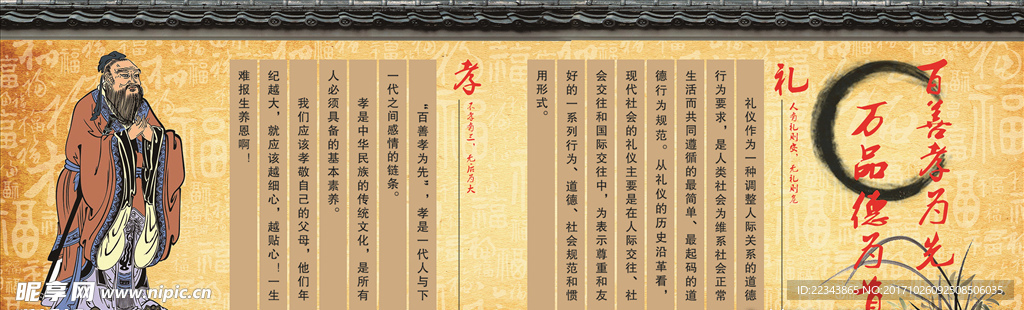 百善孝为先
万品德为首
礼
人有礼则安，无礼则危
礼仪作为一种调整人际关系的道德
行为要求，是人类社会为维系社会正常
生活而共同遵循的最简单、最起码的道
德行为规范。从礼仪的历史沿革看，
现代社会的礼仪主要是在人际交往、社
会交往和国际交往中，为表示尊重和友
好的一系列行为、道德、社会规范和惯
用形式。
孝
不孝有三，无后为大
“百善孝为先”，孝是一代人与下
一代之间感情的链条。
孝是中华民族的传统文化，是所有
人必须具备的基本素养。
我们应该孝敬自己的父母，他们年
纪越大，就应该越细心，越贴心！一生
难报生养恩啊！
昵享网 www.nipic.cn
ID:22343865 NO:20171026092508506035